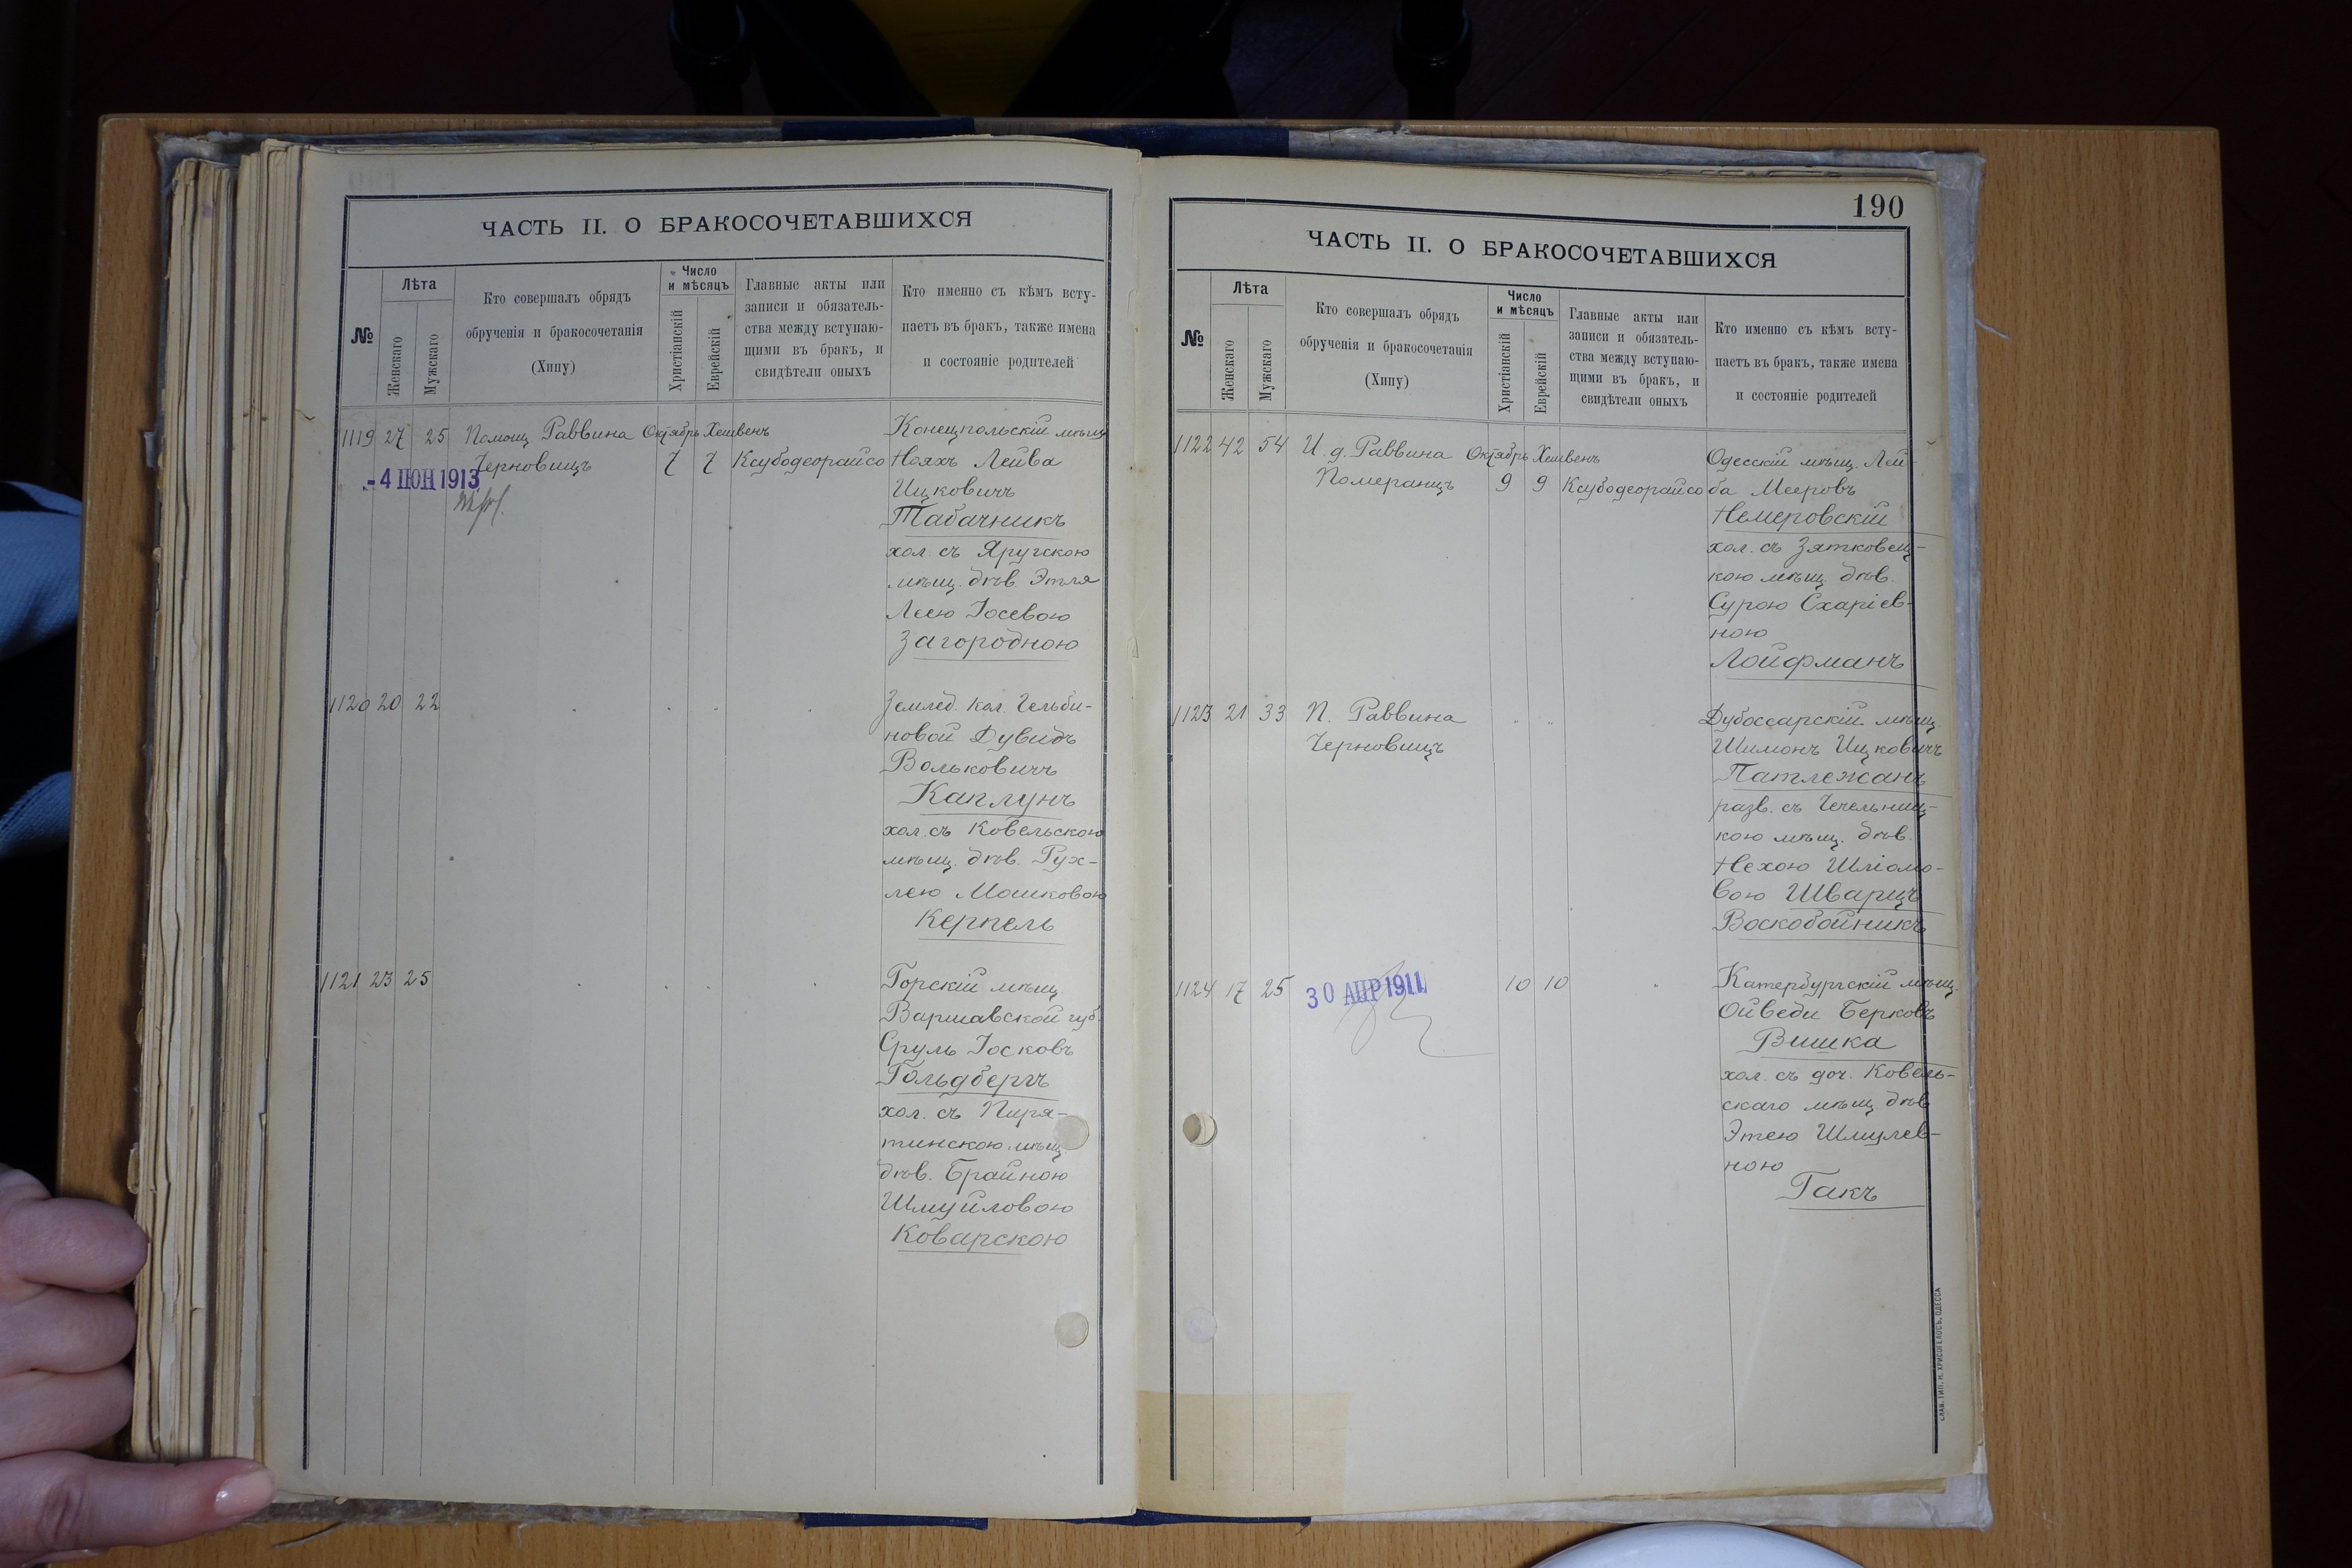 ЧАСТЬ II. О БРАКОСОЧЕТАВШИХСЯ
№
Лѣта
Женскаго
Мужскаго
Кто совершалъ обрядъ
обрученія и бракосочетанія
(Хипу)
Число
и мѣсяцъ
Христіанскій
Еврейскій
Главные акты или
записи и обязатель-
ства между вступаю-
щими въ бракъ, и
свидѣтели оныхъ
Кто именно съ кѣмъ всту-
паетъ въ бракъ, также имена
и состояніе родителей
1119 27 25 Помощ Раввина Октябрь Хешвенъ
Черновицъ 7 7 Ксубодеорайсо
-4 ІЮН 1913
Конецпольскій мѣщ
Нояхъ Лейва
Ицковичъ
Табачникъ
хол. съ Яругскою
мѣщ. дѣв. Этля
Леею Іосевою
Загородною
1120 20 22
Землед. кол. Гельби-
новой Дувидъ
Вольковичъ
Каплунъ
хол. съ Ковельскою
мѣщ. дѣв. Рух-
лею Мошковою
Керпель
1121 23 25
Горскій мѣщ
Варшавской губ.
Сруль Іосковъ
Гольдбергъ
хол. съ Пиря-
тинскою мѣщ.
дѣв. Брайною
Шмуйловою
Коварскою
190
ЧАСТЬ II. О БРАКОСОЧЕТАВШИХСЯ
№
Лѣта
Женскаго
Мужскаго
Кто совершалъ обрядъ
обрученія и бракосочетанія
(Хипу)
Число
и мѣсяцъ
Христіанскій
Еврейскій
Главные акты или
записи и обязатель-
ства между вступаю-
щими въ бракъ, и
свидѣтели оныхъ
Кто именно съ кѣмъ всту-
паетъ въ бракъ, также имена
и состояніе родителей
1122 42 54 И. д. Раввина Октябрь Хешвенъ
Померанцъ 9 9 Ксубодеорайсо
Одесскій мѣщ. Лей-
ба Мееровъ
Немеровскій
хол. съ Зятковец-
кою мѣщ. дѣв.
Сурою Схаріев-
ною
Лойфманъ
1123 21 33 П. Раввина
Черновицъ
Дубоссарскій мѣщ.
Шимонъ Ицковичъ
Патлежанъ
разв. съ Чечельниц-
кою мѣщ. дѣв.
Нехою Шліомо-
вою Шварцъ
Воскобойникъ
1124 17 25 30 АПР 1911 10 10
Катербургскій мѣщ.
Ойведи Берковъ
Вишка
хол. съ доч. Ковель-
скаго мѣщ дѣв
Этею Шмулев-
ною
Гакъ
СЛАВ. ТИП. Н. ХРИСОГЕЛОСЪ, ОДЕССА